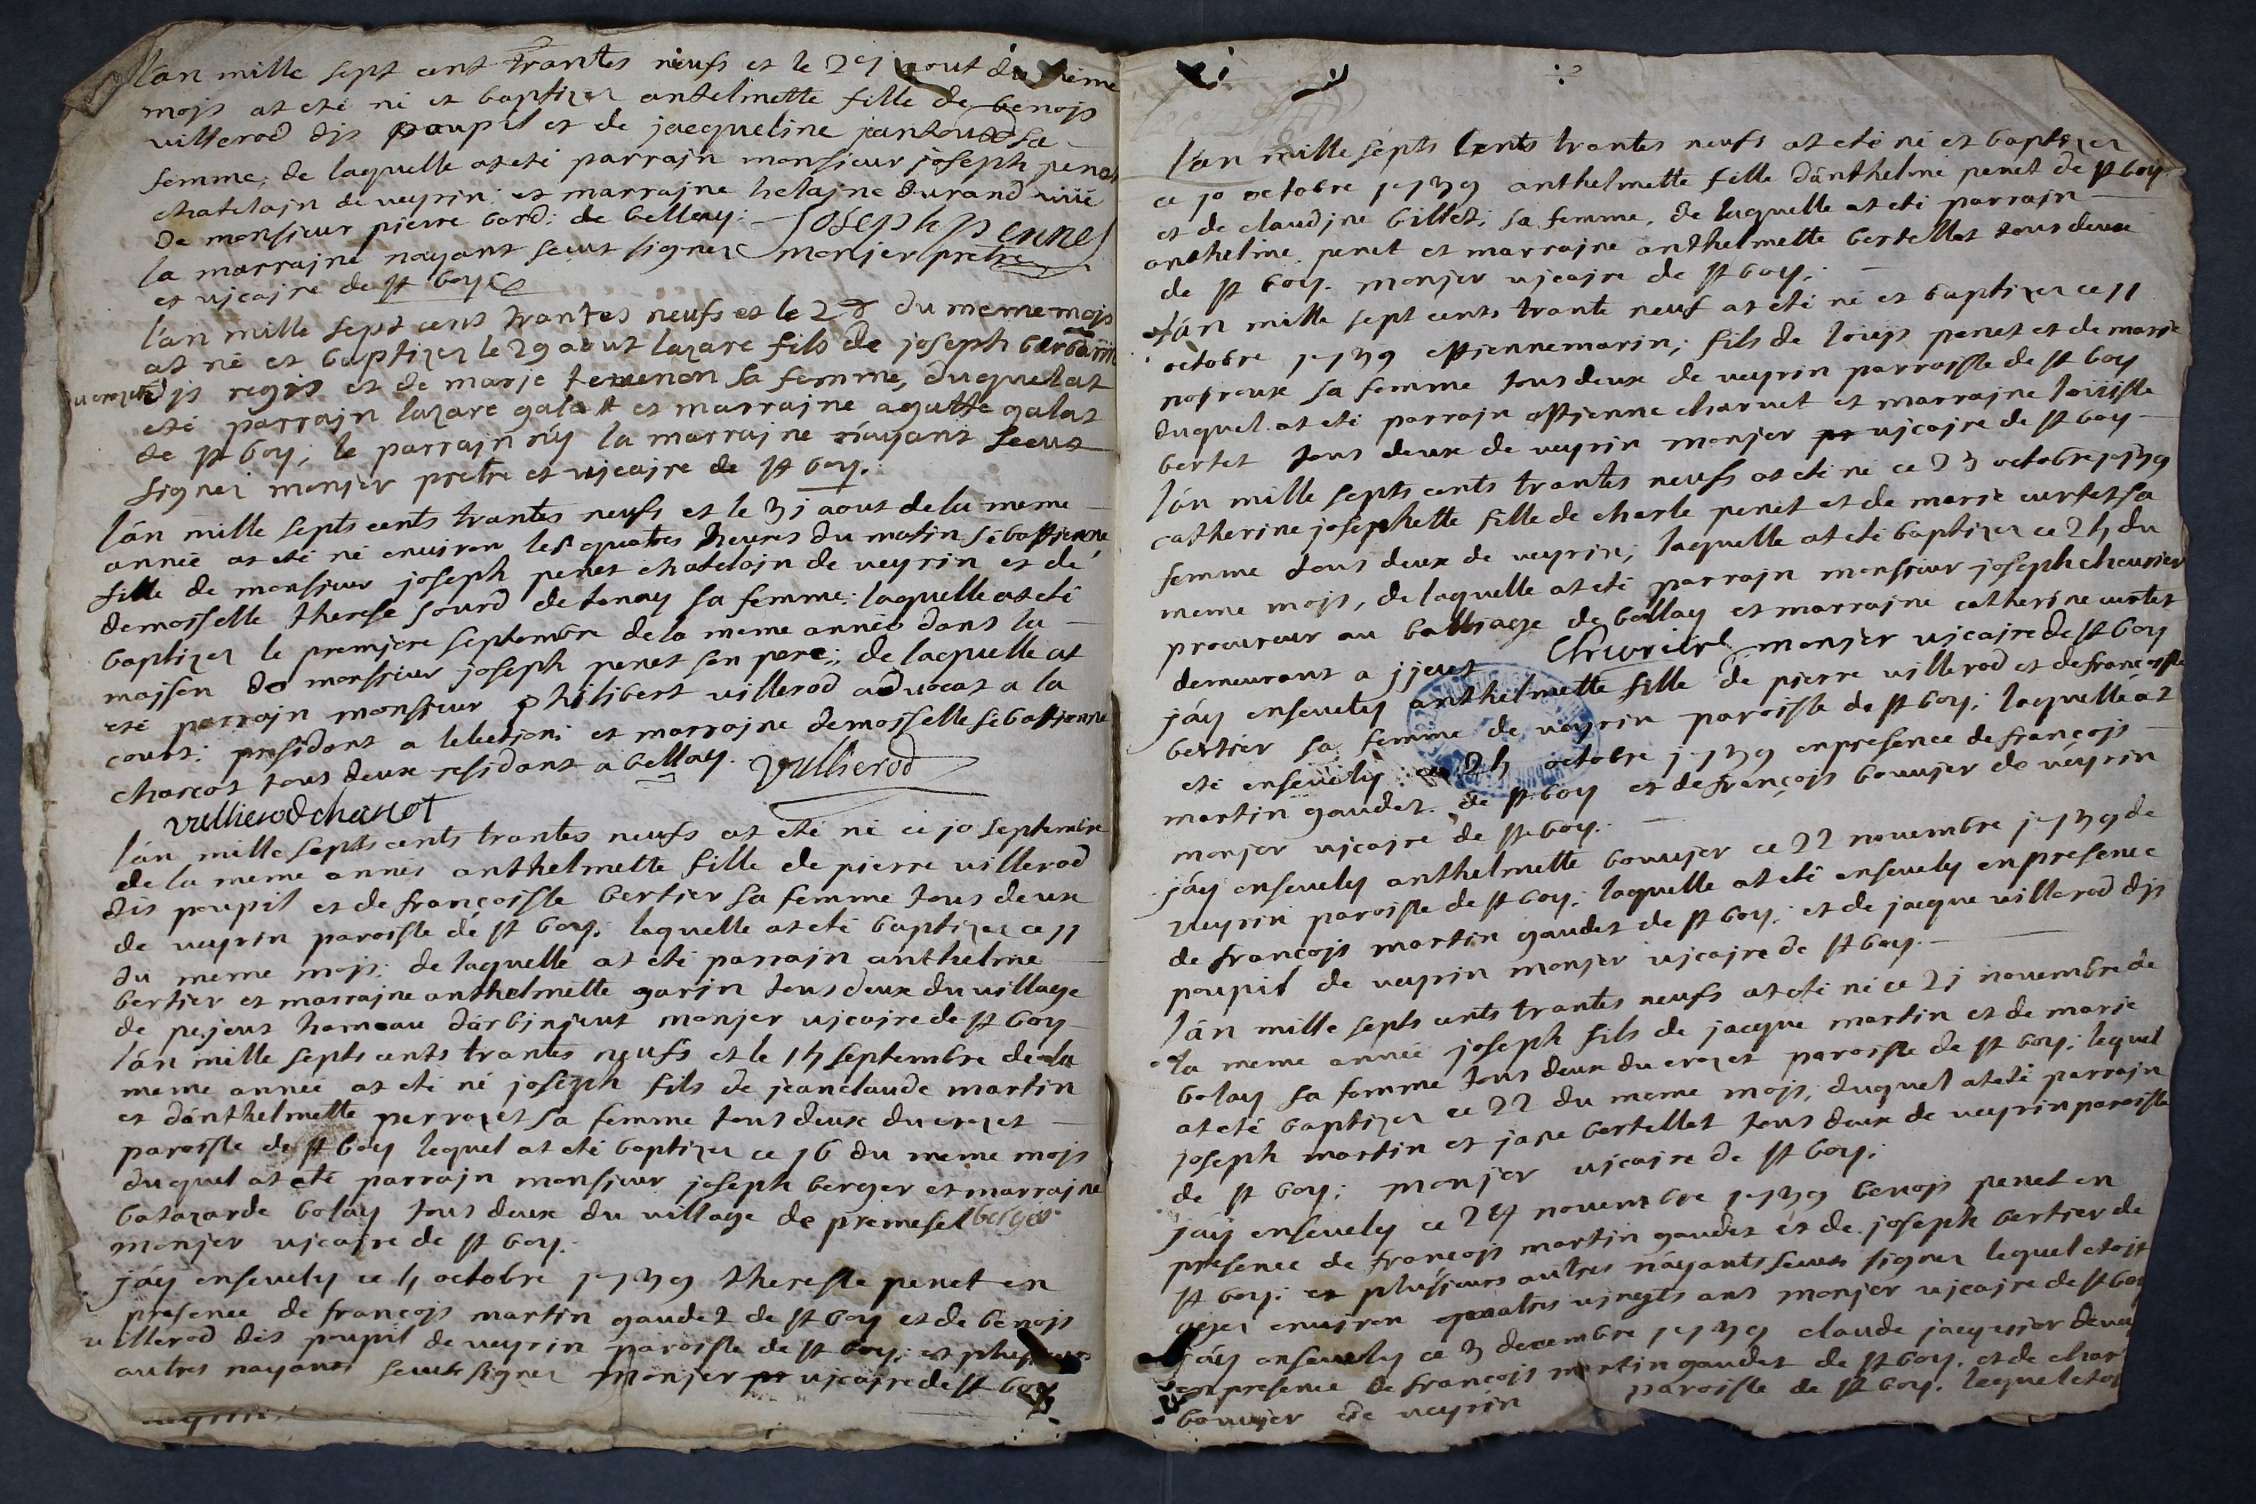 l'an mille sept cent trantes neufs et le 27 aout du meme
mojs at eté né et baptizez antelmette fille de benojs
villerod djs poupil et de jacqueline jantoud sa
femme; de laquelle at eté parrajn monsjeur joseph penet
chatelajn de veyrin; et marrajne helajne durand
de monsjeur pierre bard: de belley:
la marrajne nayant sceut signez Joseph penet monjer pretre
et vjcajre de st boy
l'an mille sept cens trantes neufs et le 28 du meme mojs
at né et baptizez le 29 aout lazare fils de joseph berbarin
du crozet djs regis et de marje tevenon sa femme, duquel at
eté parrajn lazare galast et marrajne agatte galat
de st boy; le parrajn n'y la marrajne n'ayant sceut
signez monjer pretre et vjcajre de st boy.
l'an mille septs cents trantes neufs et le 31 aout de la meme
année at eté né environ les quatres heures du matin sebastjenne
fille de monsjeur joseph penet chatelajn de veyrin et de
demoisselle therese sourd de tenay sa femme: laquelle at eté
baptizez le premjere septembre de la meme année dans la
majson de monsjeur joseph penet son pere; de laquelle at
eté parrajn monsjeur philibert villerod advocat a la
court: presidant a lelectjon; et marrajne demoisselle sebastjenne
charcot tous deux residant a bellay. Vullierod
vullierod charcot
l'an mille septs cents trantes neufs at eté né ce 10 septembre
de la meme année anthelmette fille de pierre villerod
dis poupil et de françoisse bertier sa femme tous deux
de veyrin paroisse de st boy; laquelle at eté baptizez ce 11
du meme mojs; de laquelle at eté parrajn anthelme
bertier et marrajne anthelmette garin tous deux du village
de pejeus hameau d'arbinjeut monjer vjcajre de st boy
l'an mille septs cents trantes neufs et le 15 septembre de la
meme année at eté né joseph fils de jeanclaude martin
et d'anthelmette perrozet sa femme tous deux du crozet
paroisse de st boy lequel at eté baptizez ce 16 du meme mojs
duquel at eté parrajn monsjeur joseph berger et marrajne
batazarde bolay tous deux du village de premesel berger
monjer vjcajre de st boy.
j'ay ensevely ce 5 octobre 1739 theresse penet en
presence de françojs martin gaudet de st boy et de benojs
villerod dis poupil de veyrin paroisse de st boy; et plusjeurs
autres nayants sceuts signez monjer vjcajre de st boy
l'an mille septs cents trantes neufs at eté né et baptizez
ce 10 octobre 1739 anthelmette fille d'anthelme penet de st boy
et de claudjne billet; sa femme, de laquelle at eté parrajn
anthelme penet et marrajne anthelmette bertellet tous deux
de st boy. monjer vjcajre de st boy;
l'an mille sept cents trante neuf at eté né et baptizez ce 11
octobre 1739 estjennemarin; fils de loujs penet et de marje
nojreux sa femme tous deux de veyrin parroisse de st boy
duquel at eté parrajn estjenne charvet et marrajne louisse
bertet tous deux de veyrin monjer vjcajre de st boy
l'an mille septs cents trantes neufs at eté né ce 23 octobre 1739
catherine josephette fille de charle penet et de marje curtet sa
femme tous deux de veyrin; laquelle at eté baptizez ce 25 du
meme mojs, de laquelle at eté parrajn monsjeur joseph cheurier
procureur au balliage de bellay et marrajne catherine curtet
demeurant a jjeut Chevrier monjer vjcajre de st boy
j'ay ensevely anthelmette fille de pierre villerod et de françoisse
bertier sa femme de veyrin paroisse de st boy; laquelle at
eté ensevely ce 25 octobre 1739 en presence de françojs
martin gaudet de st boy et de françojs bouvjer de veyrin
monjer vjcajre de st boy.
j'ay ensevely anthelmette bouvjer ce 22 novembre 1739 de
veyrin paroisse de st boy; laquelle at eté ensevely en presence
de françojs martin gaudet de st boy; et de jacque villerod djs
poupil de veyrin monjer vjcajre de st boy.
l'an mille septs cents trantes neufs at eté né ce 21 novembre de
la meme année joseph fils de jacque martin et de marje
bolay sa femme tous deux du crozet paroisse de st boy; lequel
at eté baptizez ce 22 du meme mojs, duquel at eté parrajn
joseph martin et jane bertellet tous deux de veyrin paroisse
de st boy; monjer vjcajre de st boy;
j'ay ensevely ce 24 novembre 1739 benojs penet en
presence de françojs martin gaudet et de joseph bertier de
st boy; et plusjeurs autres n'ayants sceuts signez lequel etojt
agez environ quatres vingts ans monjer vjcajre de st boy
j'ay ensevely ce 3 decembre 1739 claude jacquier de
en presence de françojs martin gaudet de st boy, et de
bouvjer de veyrin paroisse de st boy. lequel